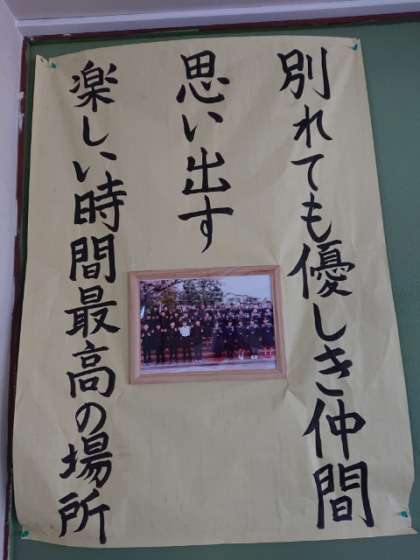 別れても優しき仲間
思い出す
楽しい時間最高の場所